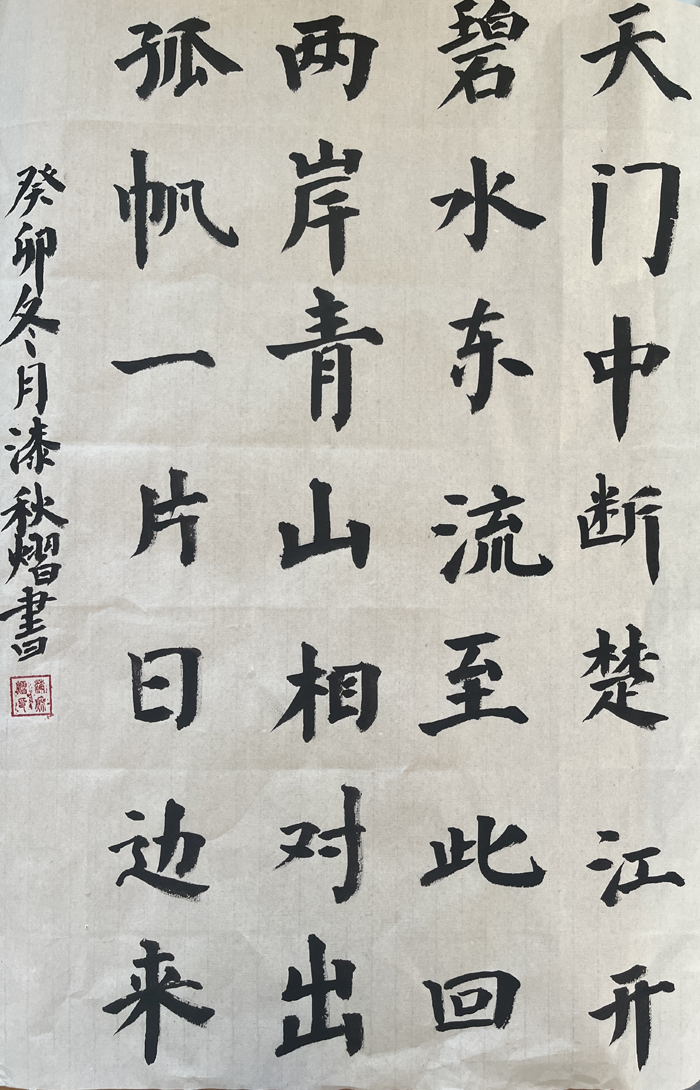 天门中断楚江开
碧水东流至此回
两岸青山相对出
孤帆一片日边来
癸卯冬月漆秋熠書